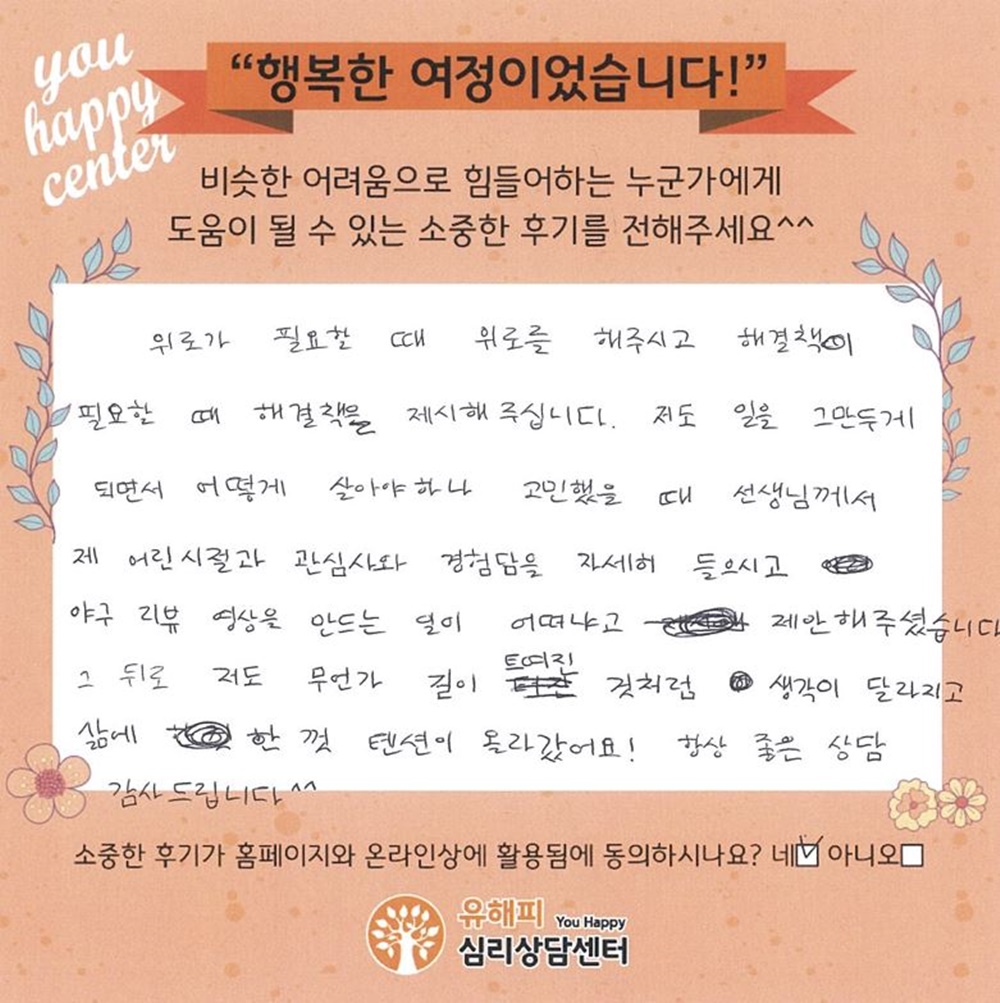 you
happy
center
“행복한 여정이었습니다!”
비슷한 어려움으로 힘들어하는 누군가에게
도움이 될 수 있는 소중한 후기를 전해주세요^^
위로가 필요할 때 위로를 해주시고 해결책이
필요할 때 해결책을 제시해 주십니다. 저도 일을 그만두게
되면서 어떻게 살아야하나 고민했을 때 선생님께서
제 어린시절과 관심사와 경험담을 자세히 들으시고
야구 리뷰 영상을 만드는 일이 어떠냐고 제안해주셨습니다
그 뒤로 저도 무언가 길이 트여진 것처럼 생각이 달라지고
삶에 한 껏 텐션이 올라갔어요! 항상 좋은 상담
감사드립니다^^
소중한 후기가 홈페이지와 온라인상에 활용됨에 동의하시나요? 네 아니오
유해피 You Happy
심리상담센터